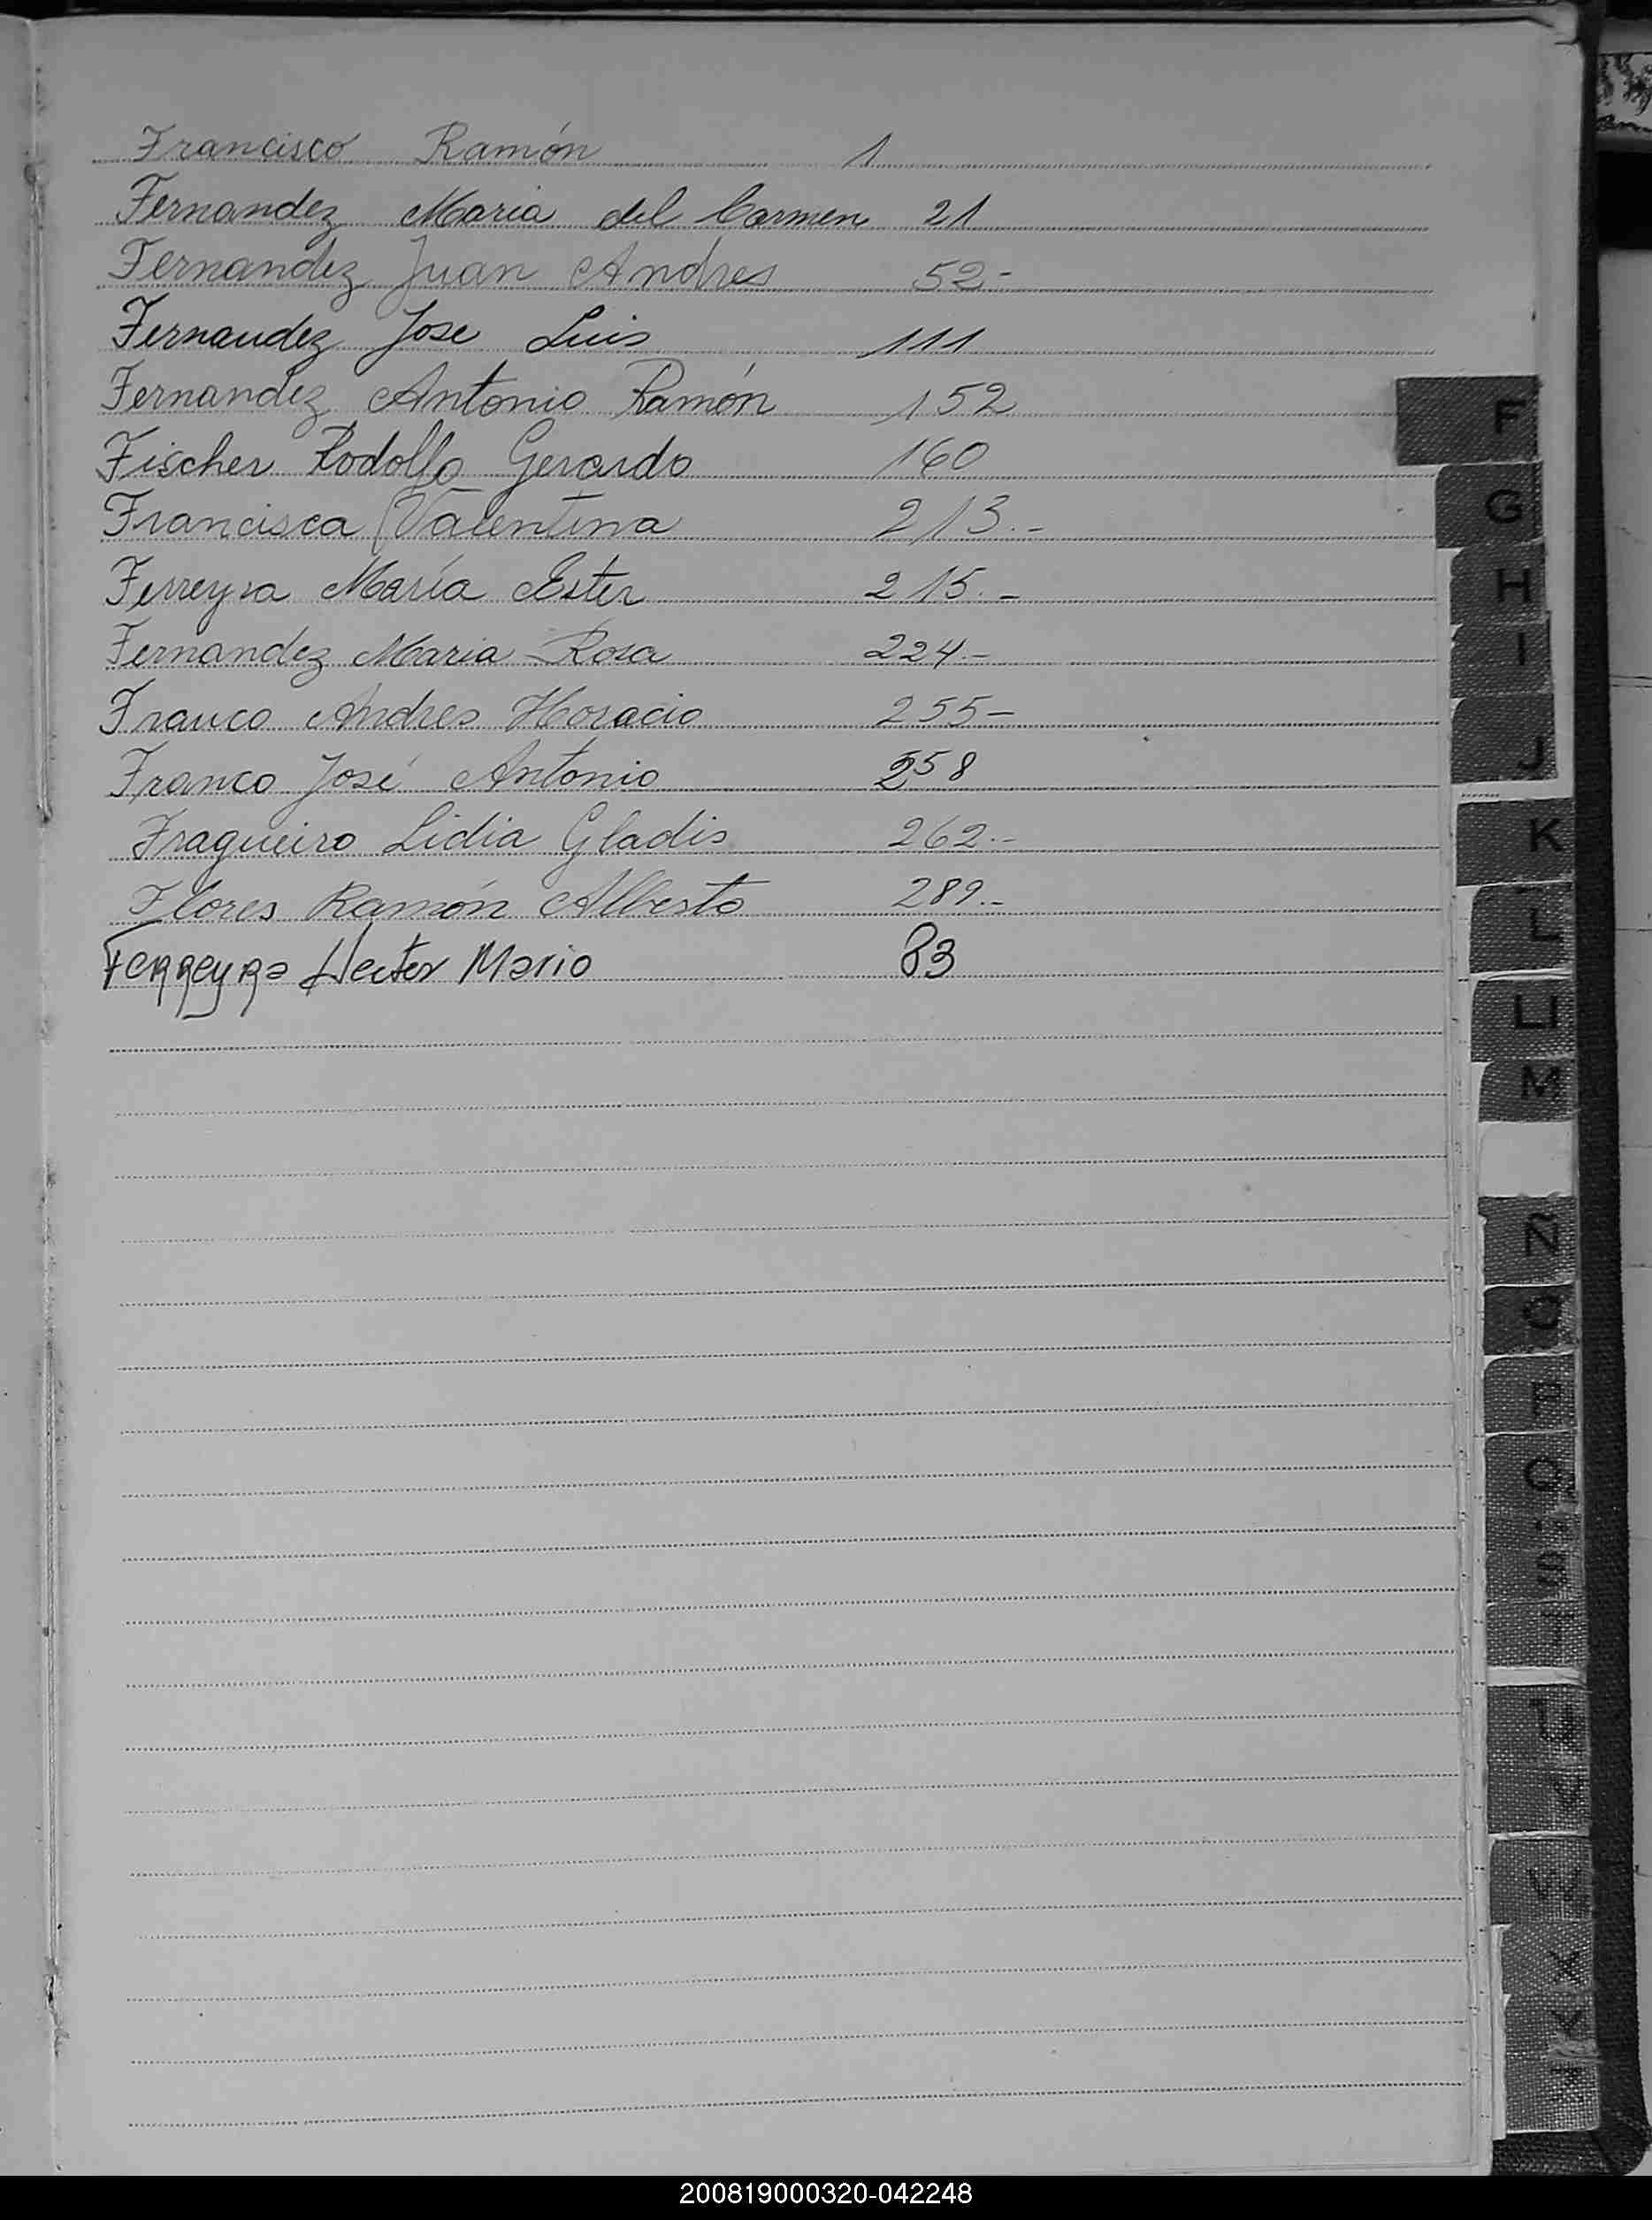 Francisco Ramón 1
Fernandez Maria del Carmen 21
Fernandez Juan Andres 52-
Fernandez Jose Luis 111
Fernandez Antonio Ramón 152
Fischer Rodolfo Gerardo 160
Francisca Valentina 213.-
Ferreyra María Ester 215.-
Fernandez Maria Rosa 224.-
Franco Andres Horacio 255-
Franco José Antonio 258
Fragueiro Lidia Gladis 262.-
Flores Ramón Alberto 289.-
Ferreyra Hector Mario 83
F
G
H
I
J
K
L
LL
M
Ñ
O
P
Q
S
T
U
V
W
X
Y
200819000320-042248